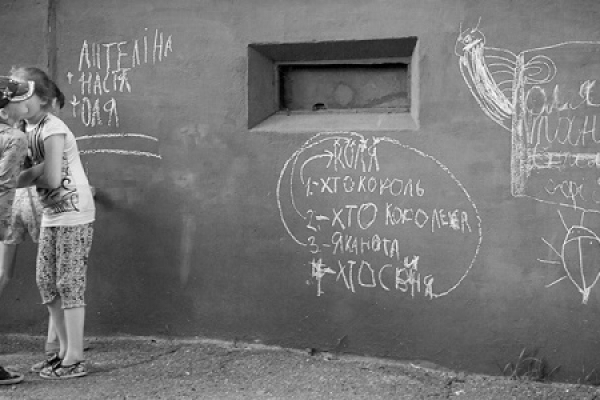 АНГЕЛІНА
+ НАСТЯ
+ ЮЛЯ
КОЛЯ
1-ХТО КОРОЛЬ
2-ХТО КОРОЛЕВА
3-ЯКА НОТА
4-ХТО СВИНЯ